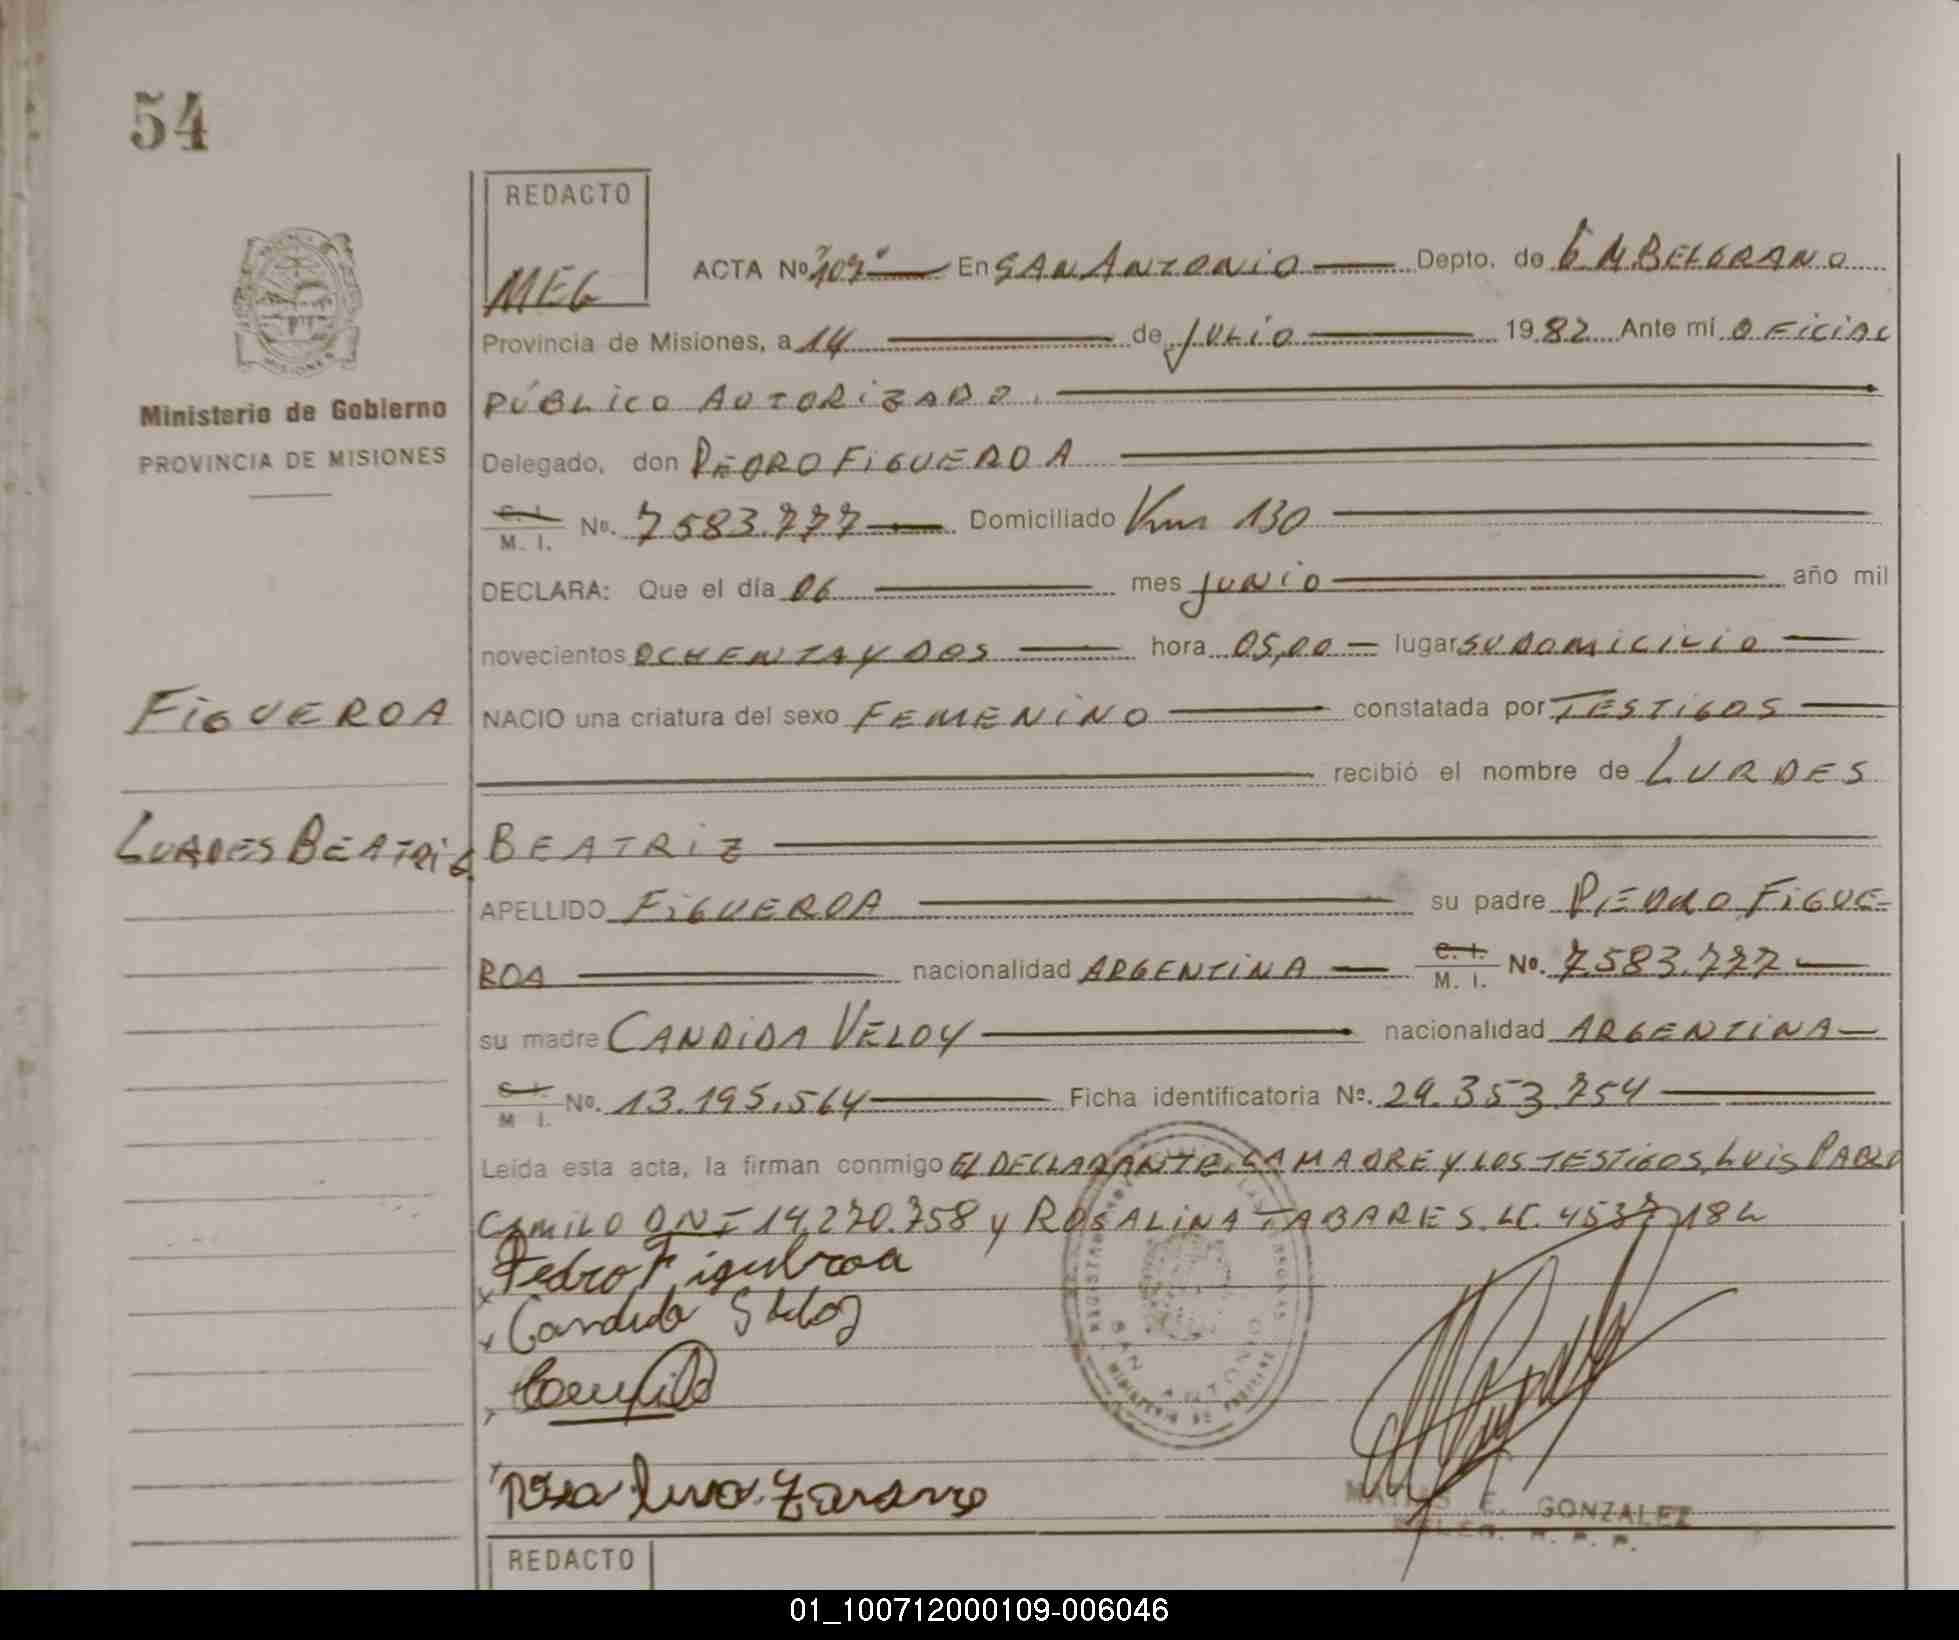 54
REDACTO
MEG
ACTA Nº "109" En SAN ANTONIO Depto. de G M. BELGRANO
Provincia de Misiones, a 14 de JULIO 1982 Ante mí OFICIAL
PÚBLICO AUTORIZADO.
Ministerio de Gobierno
PROVINCIA DE MISIONES
Delegado, don PEDRO FIGUEROA
C. I.
M. I. Nº. 7583.777 Domiciliado Km 130
DECLARA: Que el día 06 mes JUNIO año mil
novecientos OCHENTA Y DOS hora 05,00 lugar SU DOMICILIO
FIGUEROA
NACIO una criatura del sexo FEMENINO constatada por TESTIGOS
recibió el nombre de LURDES
LURDES BEATRIZ
BEATRIZ
APELLIDO FIGUEROA su padre PEDRO FIGUE-
ROA nacionalidad ARGENTINA C. I. M. I. Nº. 7.583.777
su madre CANDIDA VELOY nacionalidad ARGENTINA
C. I.
M. I. Nº. 13.195.564 Ficha identificatoria Nº. 29.353.754
Leída esta acta, la firman conmigo EL DECLARANTE, LA MADRE Y LOS TESTIGOS, LUIS PABLO
CAMILO DNI 14.270.758 y ROSALINA TABARES. LC. 4537184
Pedro Figueroa
Candida
SAN ANTONIO
E. GONZALEZ
REDACTO
01_100712000109-006046